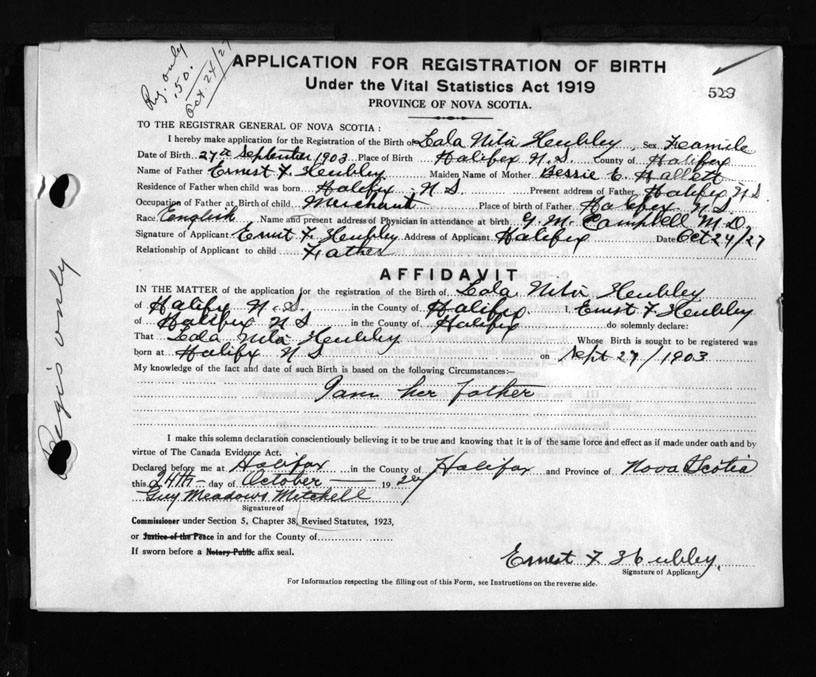 Reg. only
.50.
Oct. 24/27
APPLICATION FOR REGISTRATION OF BIRTH
Under the Vital Statistics Act 1919
PROVINCE OF NOVA SCOTIA.
TO THE REGISTRAR GENERAL OF NOVA SCOTIA:
I hereby make application for the Registration of the Birth of Lala Nita Heubley Sex Feamile
Date of Birth 27th September 1903 Place of Birth Halifax N.S. County of Halifax
Name of Father Ernest F. Heubley Maiden Name of Mother Bessie E. Hallett
Residence of Father when child was born Halifax N S Present address of Father Halifax N S
Occupation of Father at Birth of child Merchant Place of birth of Father Halifax N.S.
Race English Name and present address of Physician in attendance at birth G. M. Campbell M.D.
Signature of Applicant Ernest F Heubley Address of Applicant Halifax Date Oct 24/27
Relationship of Applicant to child Father
AFFIDAVIT
IN THE MATTER of the application for the registration of the Birth of Lala Nita Heubley
of Halifax N.S. in the County of Halifax I, Ernest F Heubley
of Halifax N S in the County of Halifax do solemnly declare:
That Lala Nita Heubley Whose Birth is sought to be registered was
born at Halifax N S on Sept 27/1903
My knowledge of the fact and date of such Birth is based on the following Circumstances:—
I am her father
I make this solemn declaration conscientiously believing it to be true and knowing that it is of the same force and effect as if made under oath and by
virtue of The Canada Evidence Act.
Declared before me at Halifax in the County of Halifax and Province of Nova Scotia
this 24th day of October 19 27
Guy Meadows Mitchell
Signature of
Commissioner under Section 5, Chapter 38, Revised Statutes, 1923,
or Justice of the Peace in and for the County of
If sworn before a Notary Public affix seal.
Ernest F Heubley
Signature of Applicant.
For Information respecting the filling out of this Form, see Instructions on the reverse side.
Regis only